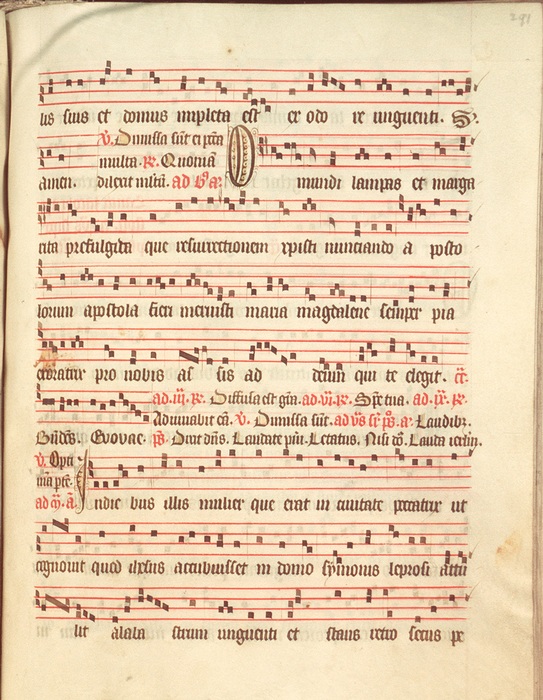 291
lis suis et domus impleta est ex odo re unguenti. S.
v. Dimissa sūt ei pctā
multa. R. Quoniā
amen. dilexit multū. ad O mundi lampas et marga
rita prefulgida que resurrectionem xpisti nunciando a posto
lorum apostola fieri meruisti maria magdalene semper pia
exoratrix pro nobis ad sis ad deum qui te elegit.
ad .iij. R. Diffusa est grā. ad .vi. R. Spē tua. ad .ix. R.
Adiuvabit eā. v. Dimissa sūt. ad Laudibꝫ.
Evovae. ps. Dixit dn̄s. Laudate pūi. Letatus. Nisi dn̄s. Lauda
v. Opti
mā ptē.
ad a. In die bus illis mulier que erat in civitate peccatrix ut
cognovit quod ihesus accubuisset in domo symonis leprosi attu
lit alaba strum unguenti et stans retro secus pe